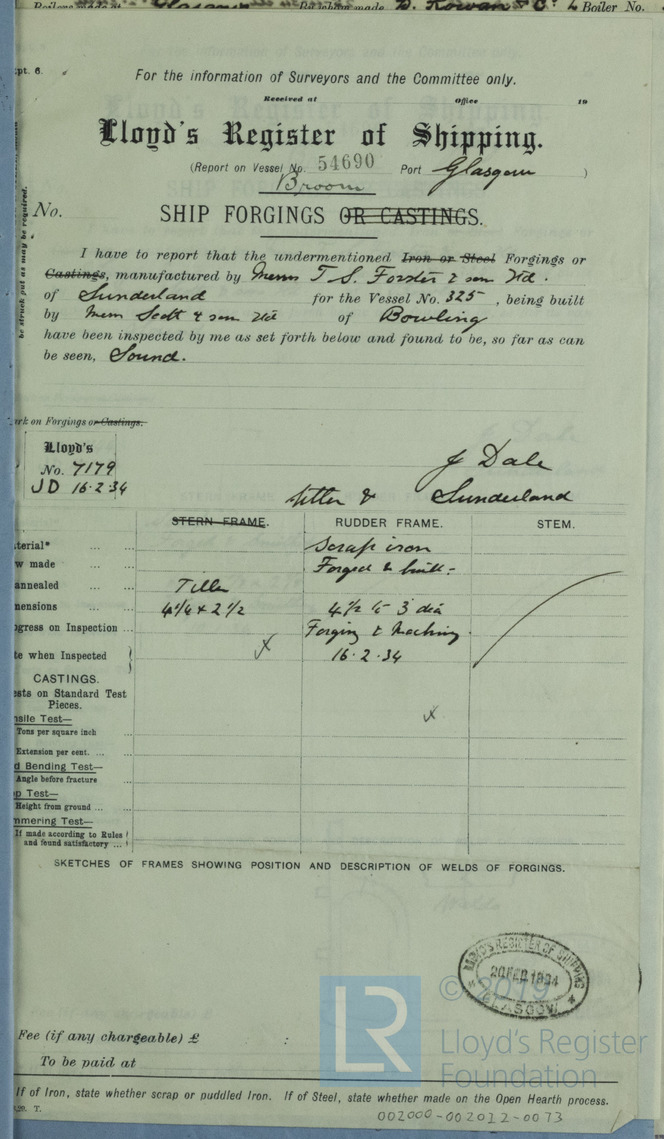 Boilers made at Glasgow By whom made D. Rowan & Co. L Boiler No.
pt. 6.
For the information of Surveyors and the Committee only.
Received at Office 19
Lloyd's Register of Shipping.
(Report on Vessel No. 54690 Port Glasgow )
Broom
be struck out as may be required.
No.
SHIP FORGINGS OR CASTINGS.
I have to report that the undermentioned Iron or Steel Forgings or
Castings, manufactured by Messrs T. S. Forster & son Ltd.
of Sunderland for the Vessel No. 325, being built
by Messrs Scott & son Ltd of Bowling
have been inspected by me as set forth below and found to be, so far as can
be seen, Sound.
rk on Forgings or Castings.
Lloyd's
No. 7179
JD 16.2.34
J Dale
Sunderland
STERN FRAME. RUDDER FRAME. STEM.
terial* ... ... Scrap iron
w made ... ... Forged & built-
annealed ... Tiller
nensions ... ... 4 1/4 x 2 1/2 4 1/2 to 3 dia
ogress on Inspection ... Forging & Maching.
te when Inspected x 16.2.34
CASTINGS.
ests on Standard Test
Pieces.
x
nsile Test—
Tons per square inch ...
Extension per cent. ... ...
d Bending Test—
Angle before fracture ...
p Test—
Height from ground ... ...
mmering Test—
If made according to Rules
and found satisfactory ...
SKETCHES OF FRAMES SHOWING POSITION AND DESCRIPTION OF WELDS OF FORGINGS.
LLOYD'S REGISTER OF SHIPPING
20 FEB 1934
GLASGOW
© 2019
LR
Lloyd's Register
Foundation
Fee (if any chargeable) £ :
To be paid at
If of Iron, state whether scrap or puddled Iron. If of Steel, state whether made on the Open Hearth process.
,29. T.
002000-002012-0073